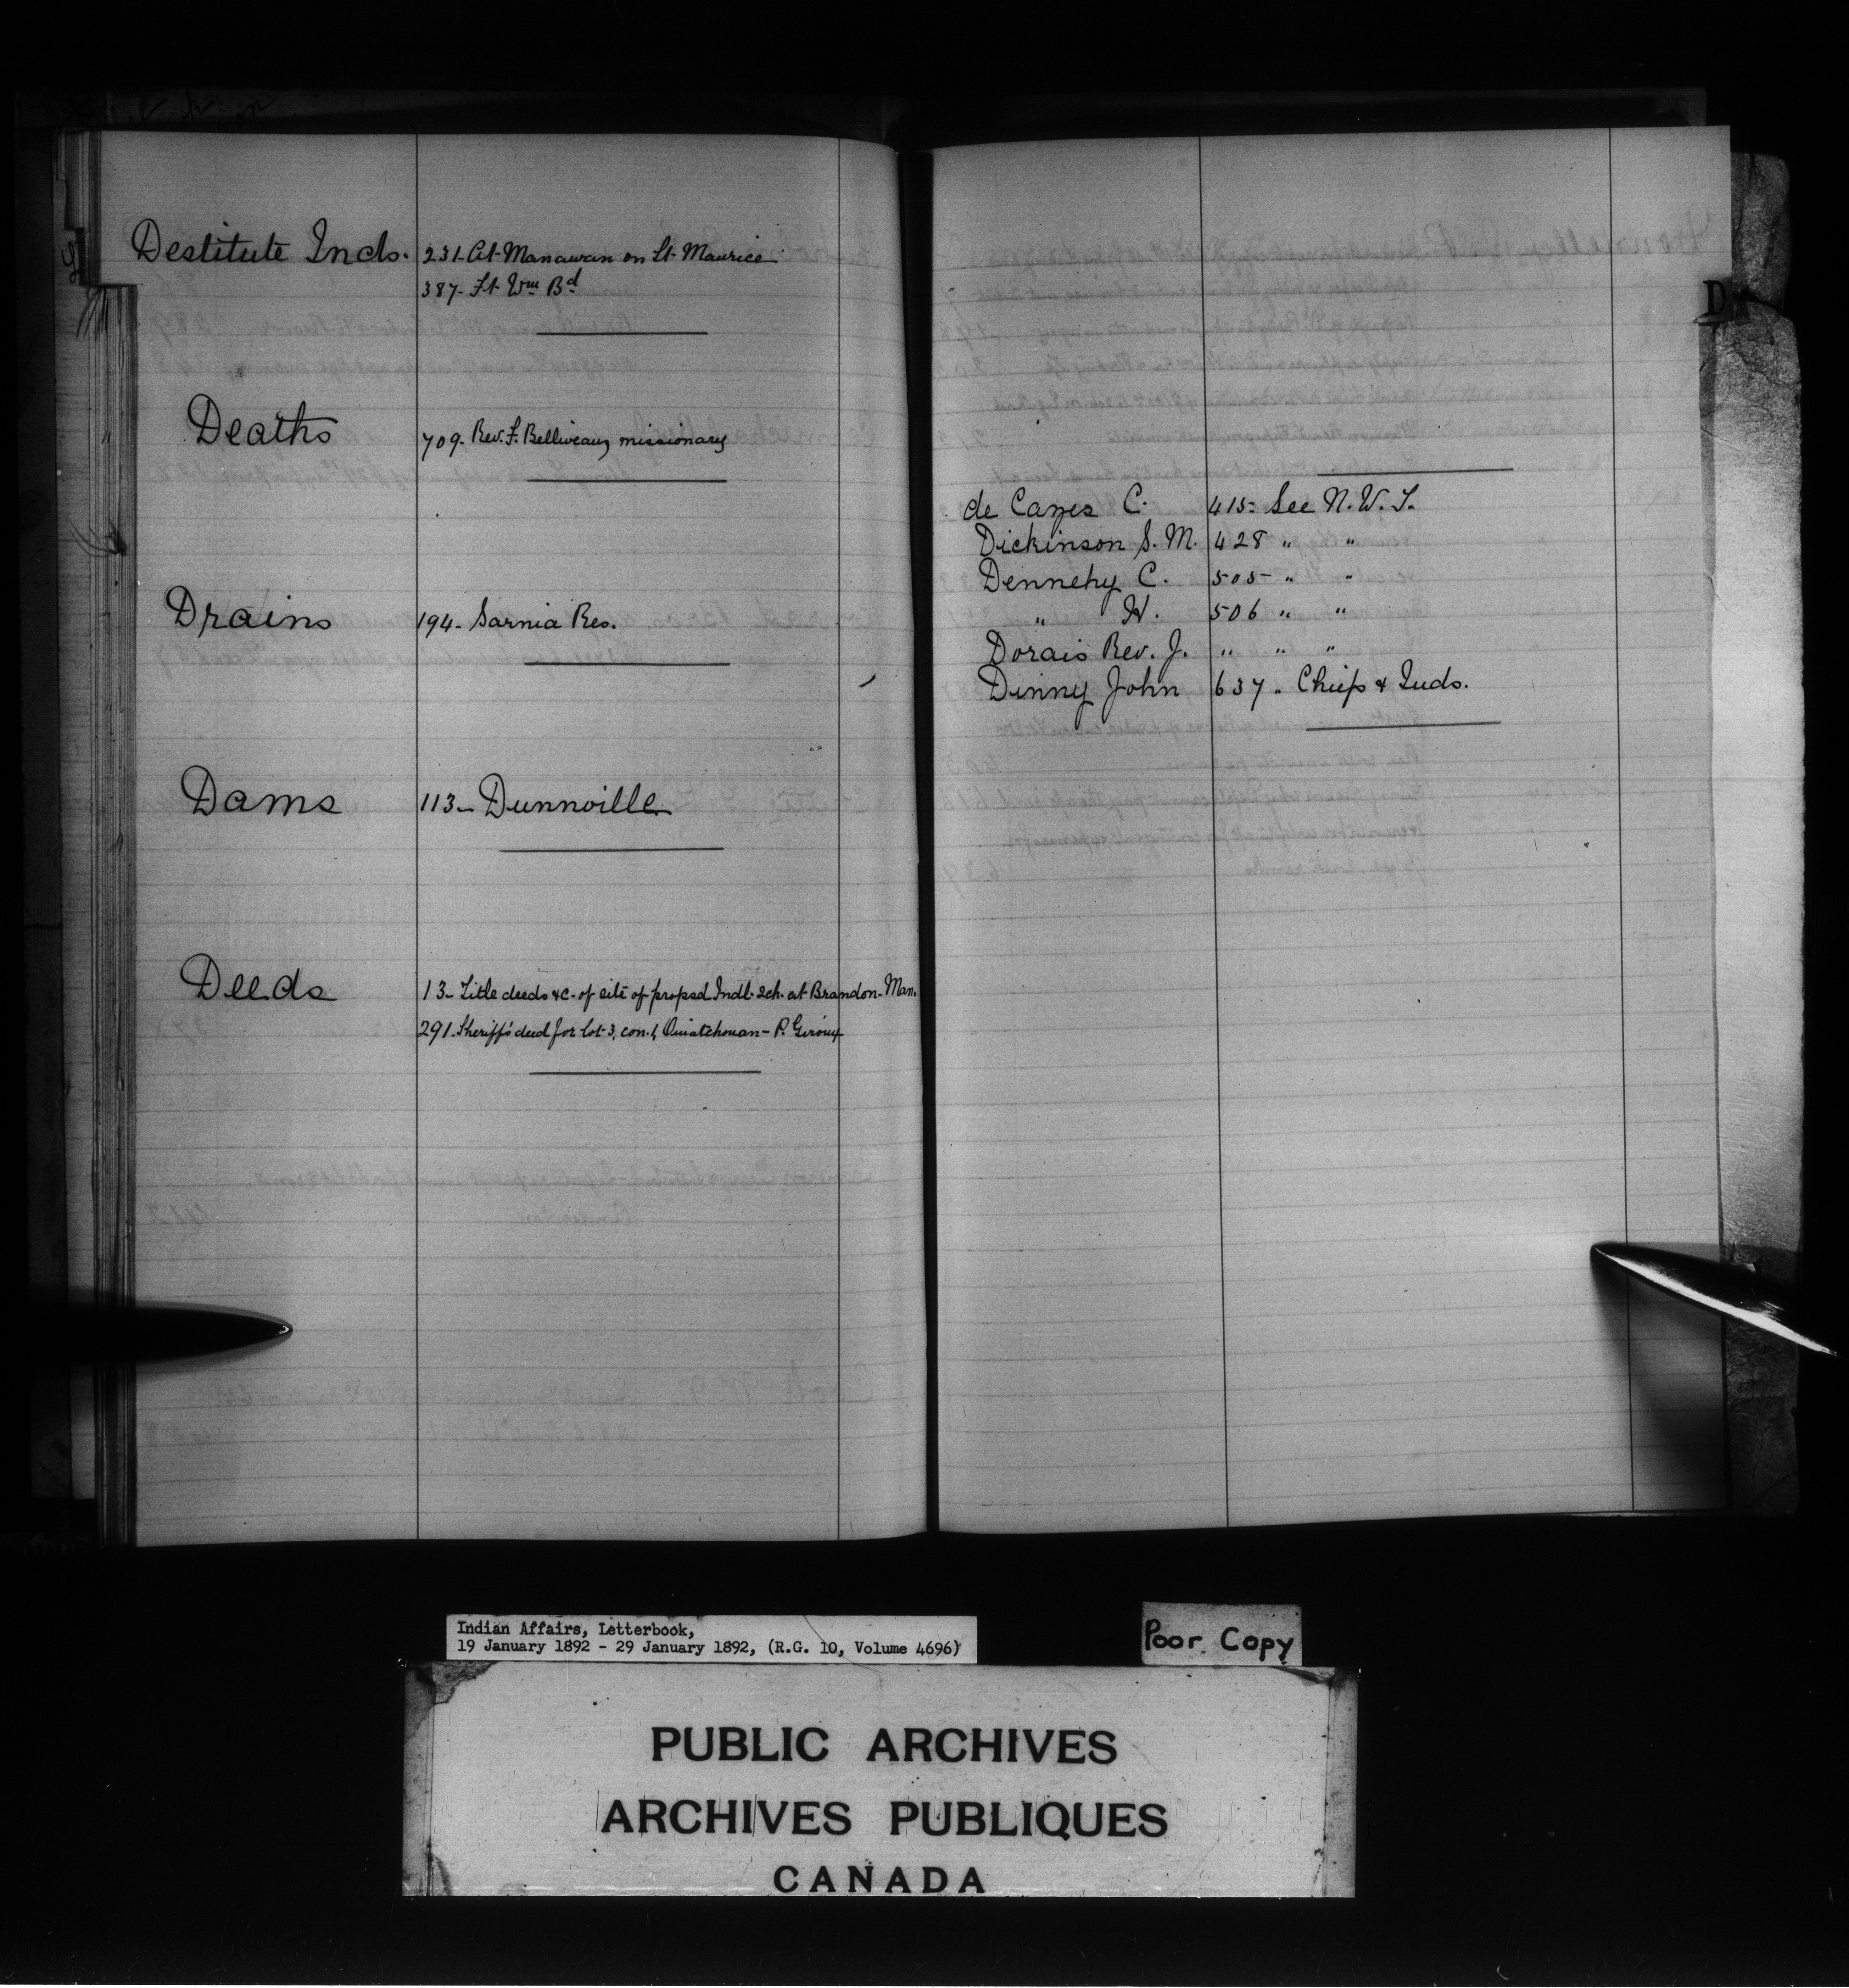 Destitute Inds. 231- At Manawan on St. Maurice
387- Ft. Wm Bd
Deaths 709- Rev. F. Belliveau, missionary
Drains 194- Sarnia Res.
Dams 113- Dunnville
Deeds 13- Title deeds &c. of site of propsd Indl. Sch. at Brandon- Man.
291. Sheriff's deed for lot 3, con. 1, Ouiatchouan- P. Giroux
D
de Cazes C. 415- See N.W.T.
Dickinson S.M. 428 " "
Dennehy C. 505- " "
" H. 506 " "
Dorais Rev. J. " " "
Dinny John 637 " Chiefs & Inds.
Indian Affairs, Letterbook,
19 January 1892 - 29 January 1892, (R.G. 10, Volume 4696)
Poor Copy
PUBLIC ARCHIVES
ARCHIVES PUBLIQUES
CANADA